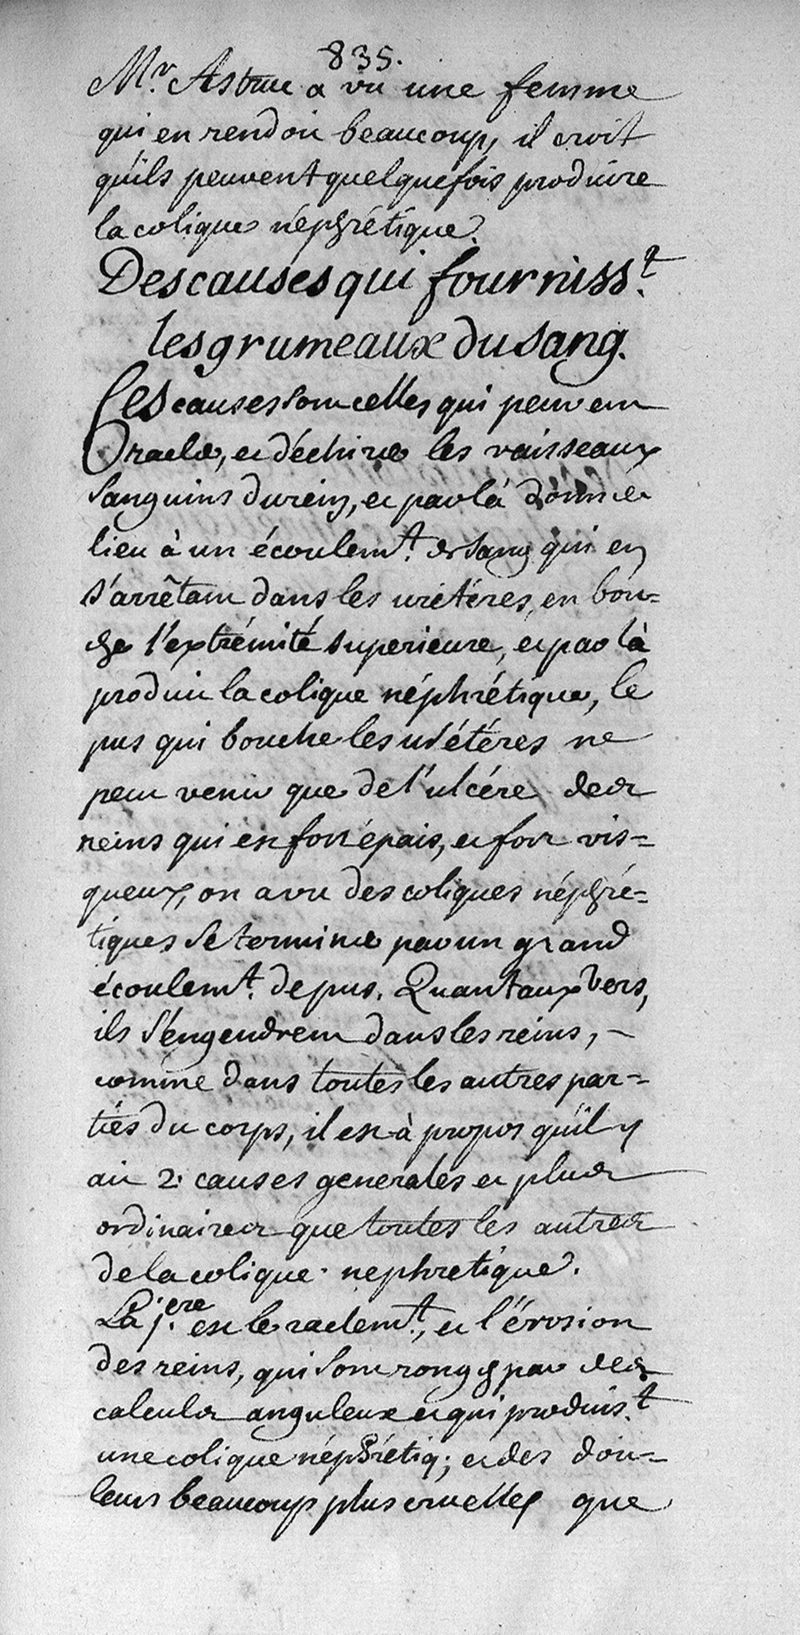 835.
Mr. Astruc a vu une femme
qui en rendoit beaucoup, il croit
qu'ils peuvent quelquefois produire
la colique néphrétique.
Des causes qui fournisst.
les grumeaux du sang.
Ces causes sont celles qui peuvent
racler, et déchirer les vaisseaux
sanguins du rein, et par là donner
lieu à un écoulemt. de sang qui en
s'arrêtant dans les uretéres, en bou=
che l'extrémité superieure, et par là
produit la colique néphrétique, le
pus qui bouche les uretéres ne
peut venir que de l'ulcére des
reins qui est fort épais, et fort vis=
queux, on a vu des coliques néphré=
tiques se terminer par un grand
écoulemt. de pus. Quant aux vers,
ils s'engendrent dans les reins, -
comme dans toutes les autres par=
ties du corps, il est à propos qu'il y
ait 2. causes generales et plus
ordinaires que toutes les autres
de la colique nephretique.
La 1.ere est le raclemt., et l'érosion
des reins, qui sont rongés par des
calculs anguleux et qui produist.
une colique néphrétiq; et des dou=
leurs beaucoup plus cruelles que